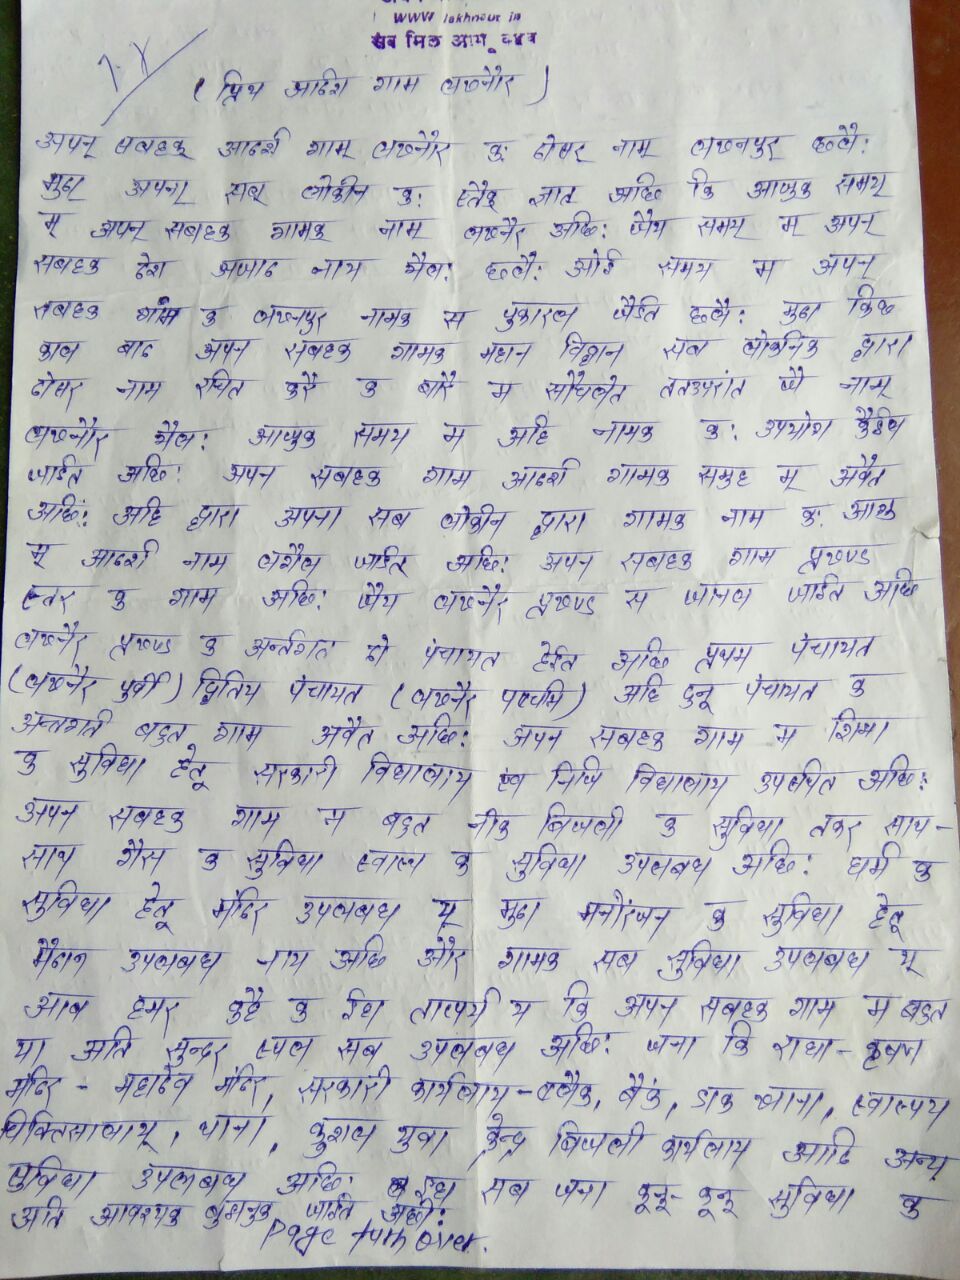 WWW lakhnaur.in
सब मिल आगू बढब
( प्रिय आदर्श गाम लखनौर )
अपन् सबहक् आदर्श गाम् लखनौर कः दोसर् नाम् लखनपुर छलैः
मुदा अपना सब् लोकनि कः ज्ञात अछि कि आजुक समय्
म् अपन् सबहक गामक् नाम लखनौर अछिः जैय समय् म् अपन्
सबहक देश अजाद नाय भैलः छलैः ओई समय म अपन्
सबहक गाम क लखनपुर नामक स पुकारल जैइत छलैः मुदा किछ
काल बाद अपन सबहक गामक महान विद्वान सब लोकनिक द्वारा
दोसर् नाम रचित करै क बारे म सोचलैत ततउपरांत जे नाम्
लखनौर भैलः आजुक समय म अहि नामक कः उपयोग कैइल
जाईत अछिः अपन सबहक गाम आदर्श गामक समुह म् अबैत
अछिः अहि द्वारा अपना सब लोकनि द्वारा गामक नाम कः आगु
म् आदर्श नाम लगैल जाईत् अछिः अपन सबहक गाम प्रखण्ड
स्तर क गाम अछिः जैय लखनौर प्रखण्ड स जानल जाईत अछि
लखनौर प्रखण्ड क अर्न्तगत दो पंचायत हैईत अछि प्रथम पंचायत
(लखनौर पुर्वी) द्वितिय पंचायत (लखनौर पश्चमि) अहि दुनू पंचायत क
अन्तगर्त बहुत गाम अबैत अछिः अपन सबहक गाम म शिक्षा
क सुविधा हेतू सरकारी विद्यालाय एंव निजि विद्यालाय अछिः
अपन सबहक गाम म बहुत नीक बिजली क सुविधा तकर साथ-
साथ गैस क सुविधा क सुविधा उपलबध अछिः धर्म क
सुविधा हेतू मंदिर उपलबध य् मुदा मनोरंजन क सुविधा हेतू
मैदान उपलबध नाय अछि और गामक सब सुविधा उपलबध य्
आब हमर कहै क ईहा तात्पर्य य कि अपन सबहक गाम म बहुत
या अति सुन्दर स्थल सब उपलबध अछिः जना कि राधा-कृषण
मंदिर - महादेव मंदिर, सरकारी कार्यलाय-ब्लौक, बैंक, डाक खाना, स्वास्थय
चिकित्सालाय्, थाना, कुशल युवा केन्द्र बिजली कार्यलाय आदि अन्य
सुविधा उपलबध अछिः ईहा सब जगा कुनू-कुनू सुविधा क
अति आवश्यक जाईत अछीः
Page turn over.